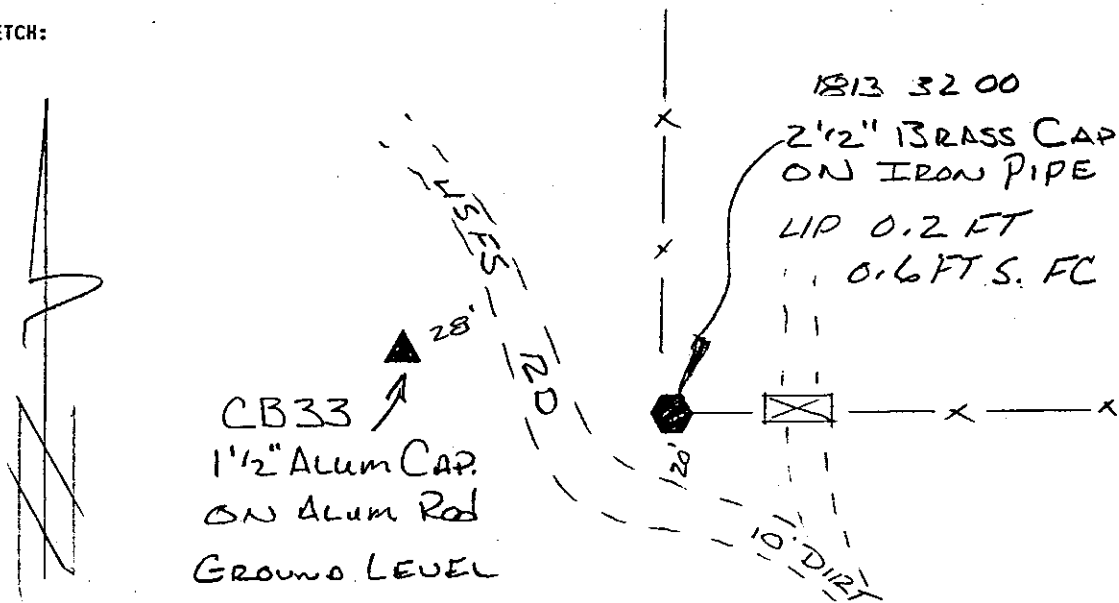 ETCH:
1813 32 00
2 1/2" BRASS CAP
ON IRON PIPE
UP 0.2 FT
0.6 FT S. FC
USFS RD
28'
CB33
1 1/2" ALUM CAP.
ON ALUM ROD
GROUND LEVEL
20'
10' DIRT
N